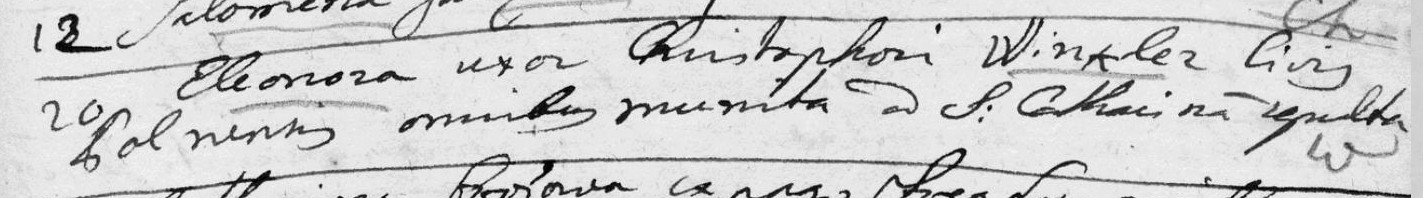 12 Salomena
Eleonora uxor Christophori Winkler Civis
20 Polnensis omnibus munita ad S. Catharinā sepulta
W